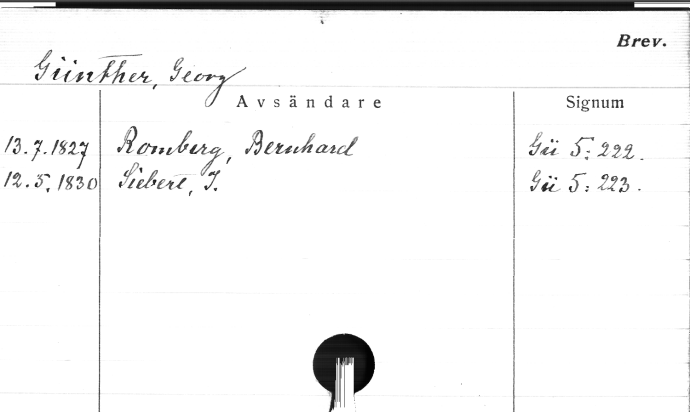 Brev.
Günther, Georg
Avsändare Signum
13.7.1827 Romberg, Bernhard Gü 5:222.
12.5.1830 Siebert, J. Gü 5:223.